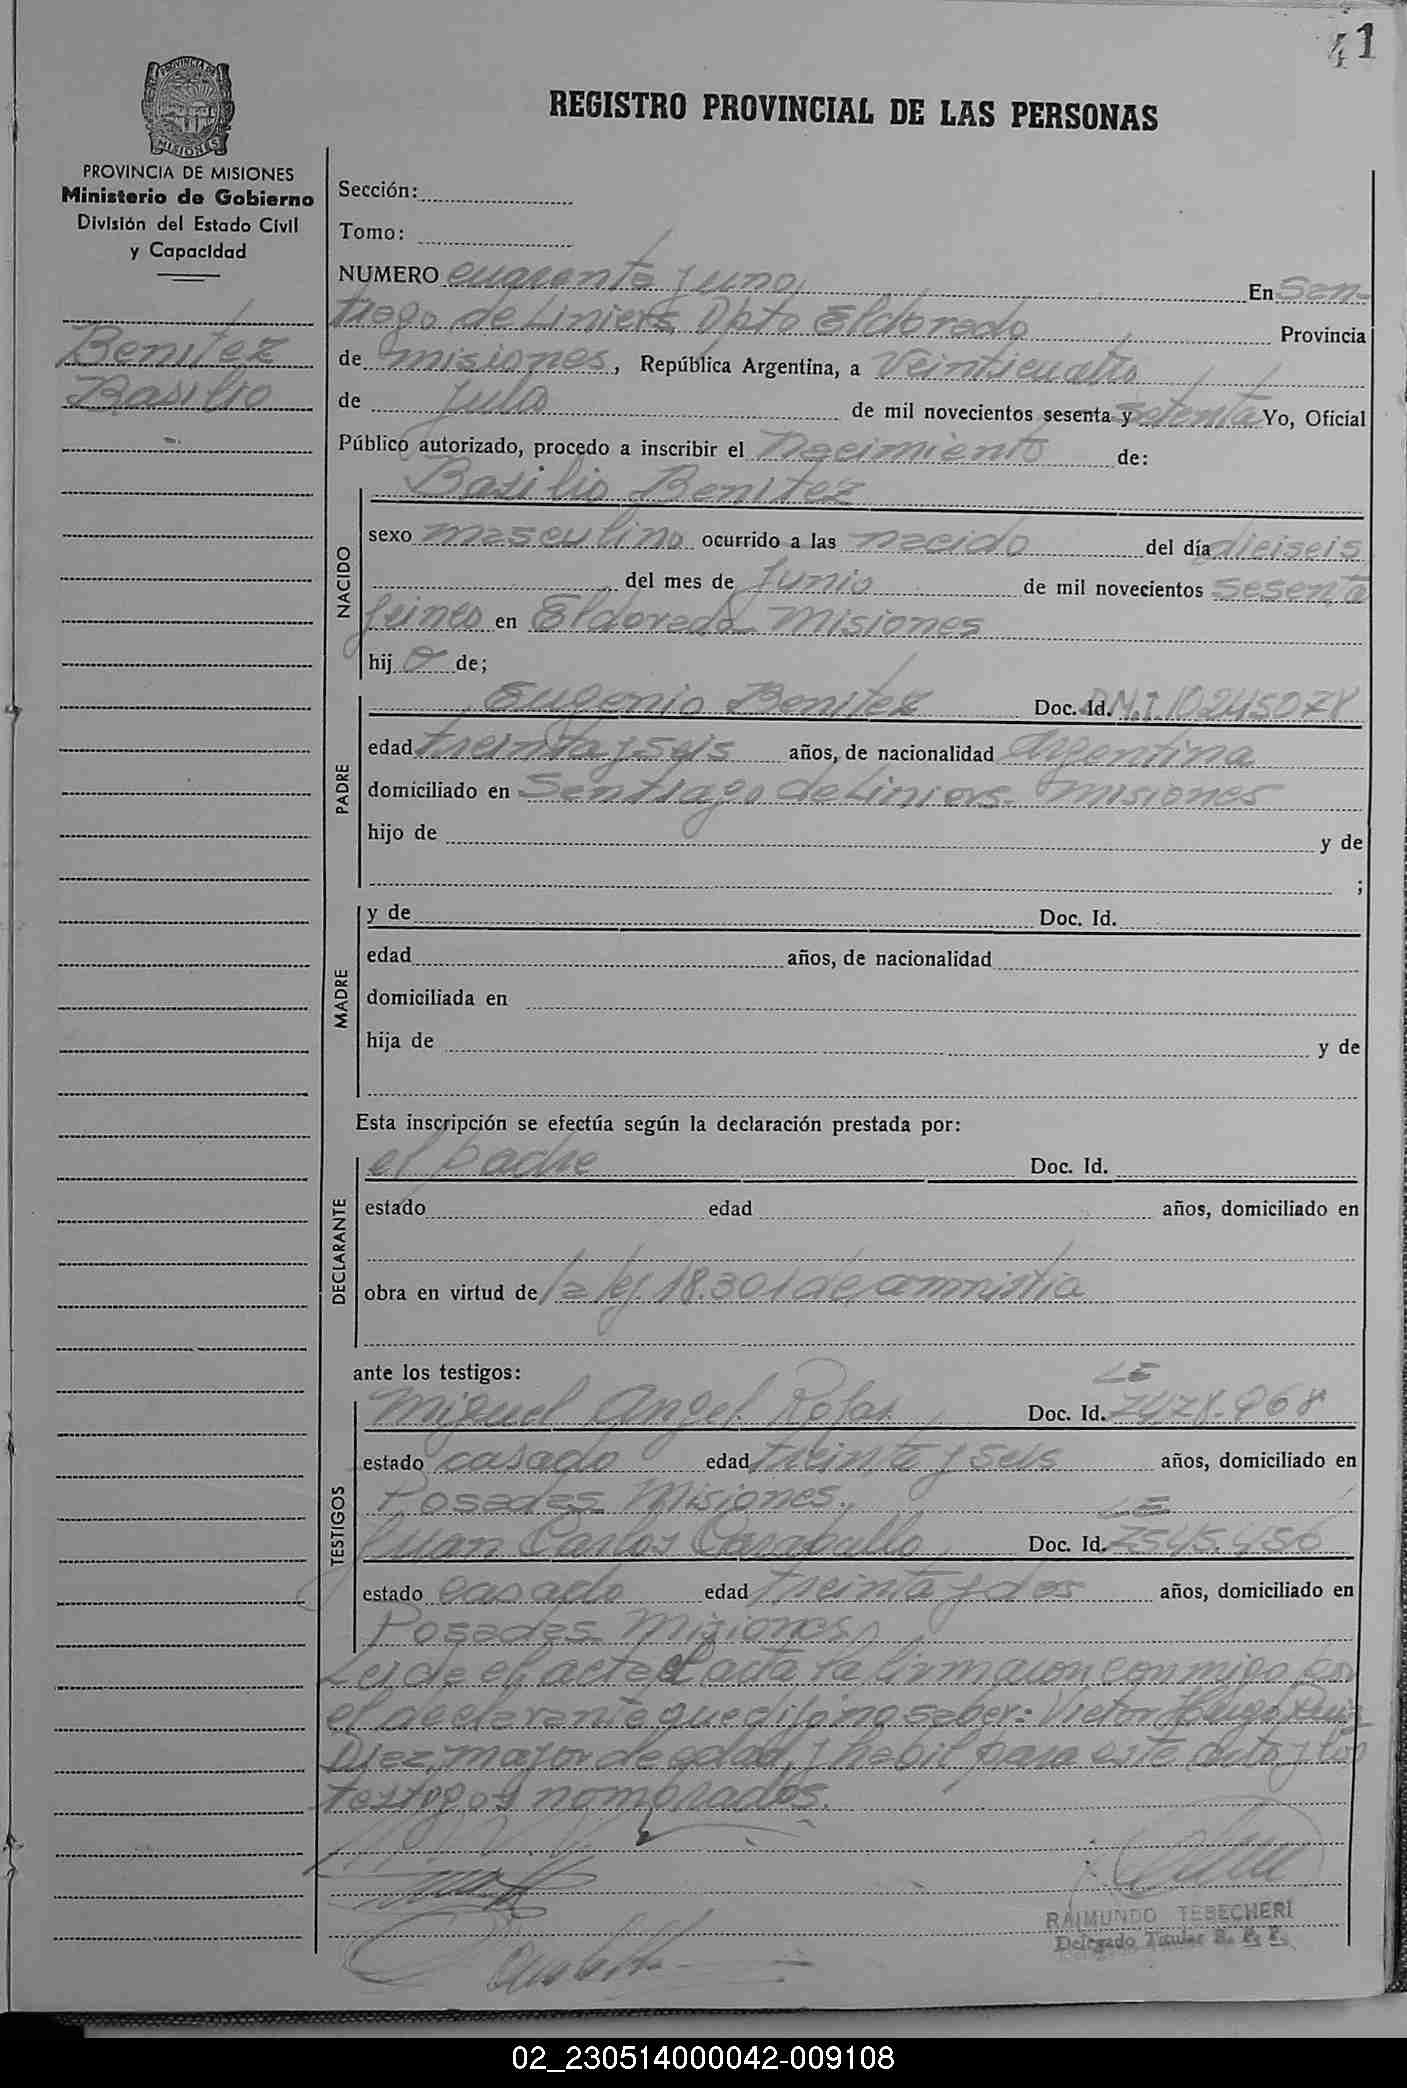 41
REGISTRO PROVINCIAL DE LAS PERSONAS
PROVINCIA DE MISIONES
PROVINCIA DE MISIONES
Ministerio de Gobierno
División del Estado Civil
y Capacidad
Benitez
Basilio
Sección:
Tomo:
NUMERO y uno En San-
tiago de Liniers Dpto Eldorado Provincia
de misiones, República Argentina, a Veinticuatro
de Julio de mil novecientos sesenta y setenta Yo, Oficial
Público autorizado, procedo a inscribir el nacimiento de:
Basilio Benitez
NACIDO
sexo masculino ocurrido a las nacido del día dieiseis
del mes de Junio de mil novecientos sesenta
y cinco en Eldorado Misiones
hij o de;
PADRE
Eugenio Benitez Doc. Id. D.N.I. 10245078
edad treinta y seis años, de nacionalidad argentina
domiciliado en Santiago de Liniers - misiones
hijo de y de
;
MADRE
y de Doc. Id.
edad años, de nacionalidad
domiciliada en
hija de y de
Esta inscripción se efectúa según la declaración prestada por:
DECLARANTE
el padre Doc. Id.
estado edad años, domiciliado en
obra en virtud de la ley 18.301 de amnistia
ante los testigos:
TESTIGOS
LE
Miguel Angel Rojas Doc. Id. 7478.968
estado casado edad treinta y seis años, domiciliado en
Posadas Misiones.
LE
Juan Carlos Caraballo Doc. Id. 7545.456
estado casado edad treinta y dos años, domiciliado en
Posadas Misiones
Leida el acta la firmaron conmigo por
el declarante que dijo no saber: Victor Hugo Ruiz
Diaz, mayor de edad y habil para este acto y los
testigos nombrados.
RAIMUNDO TEBECHERI
Delegado Titular R. P. P.
02_230514000042-009108